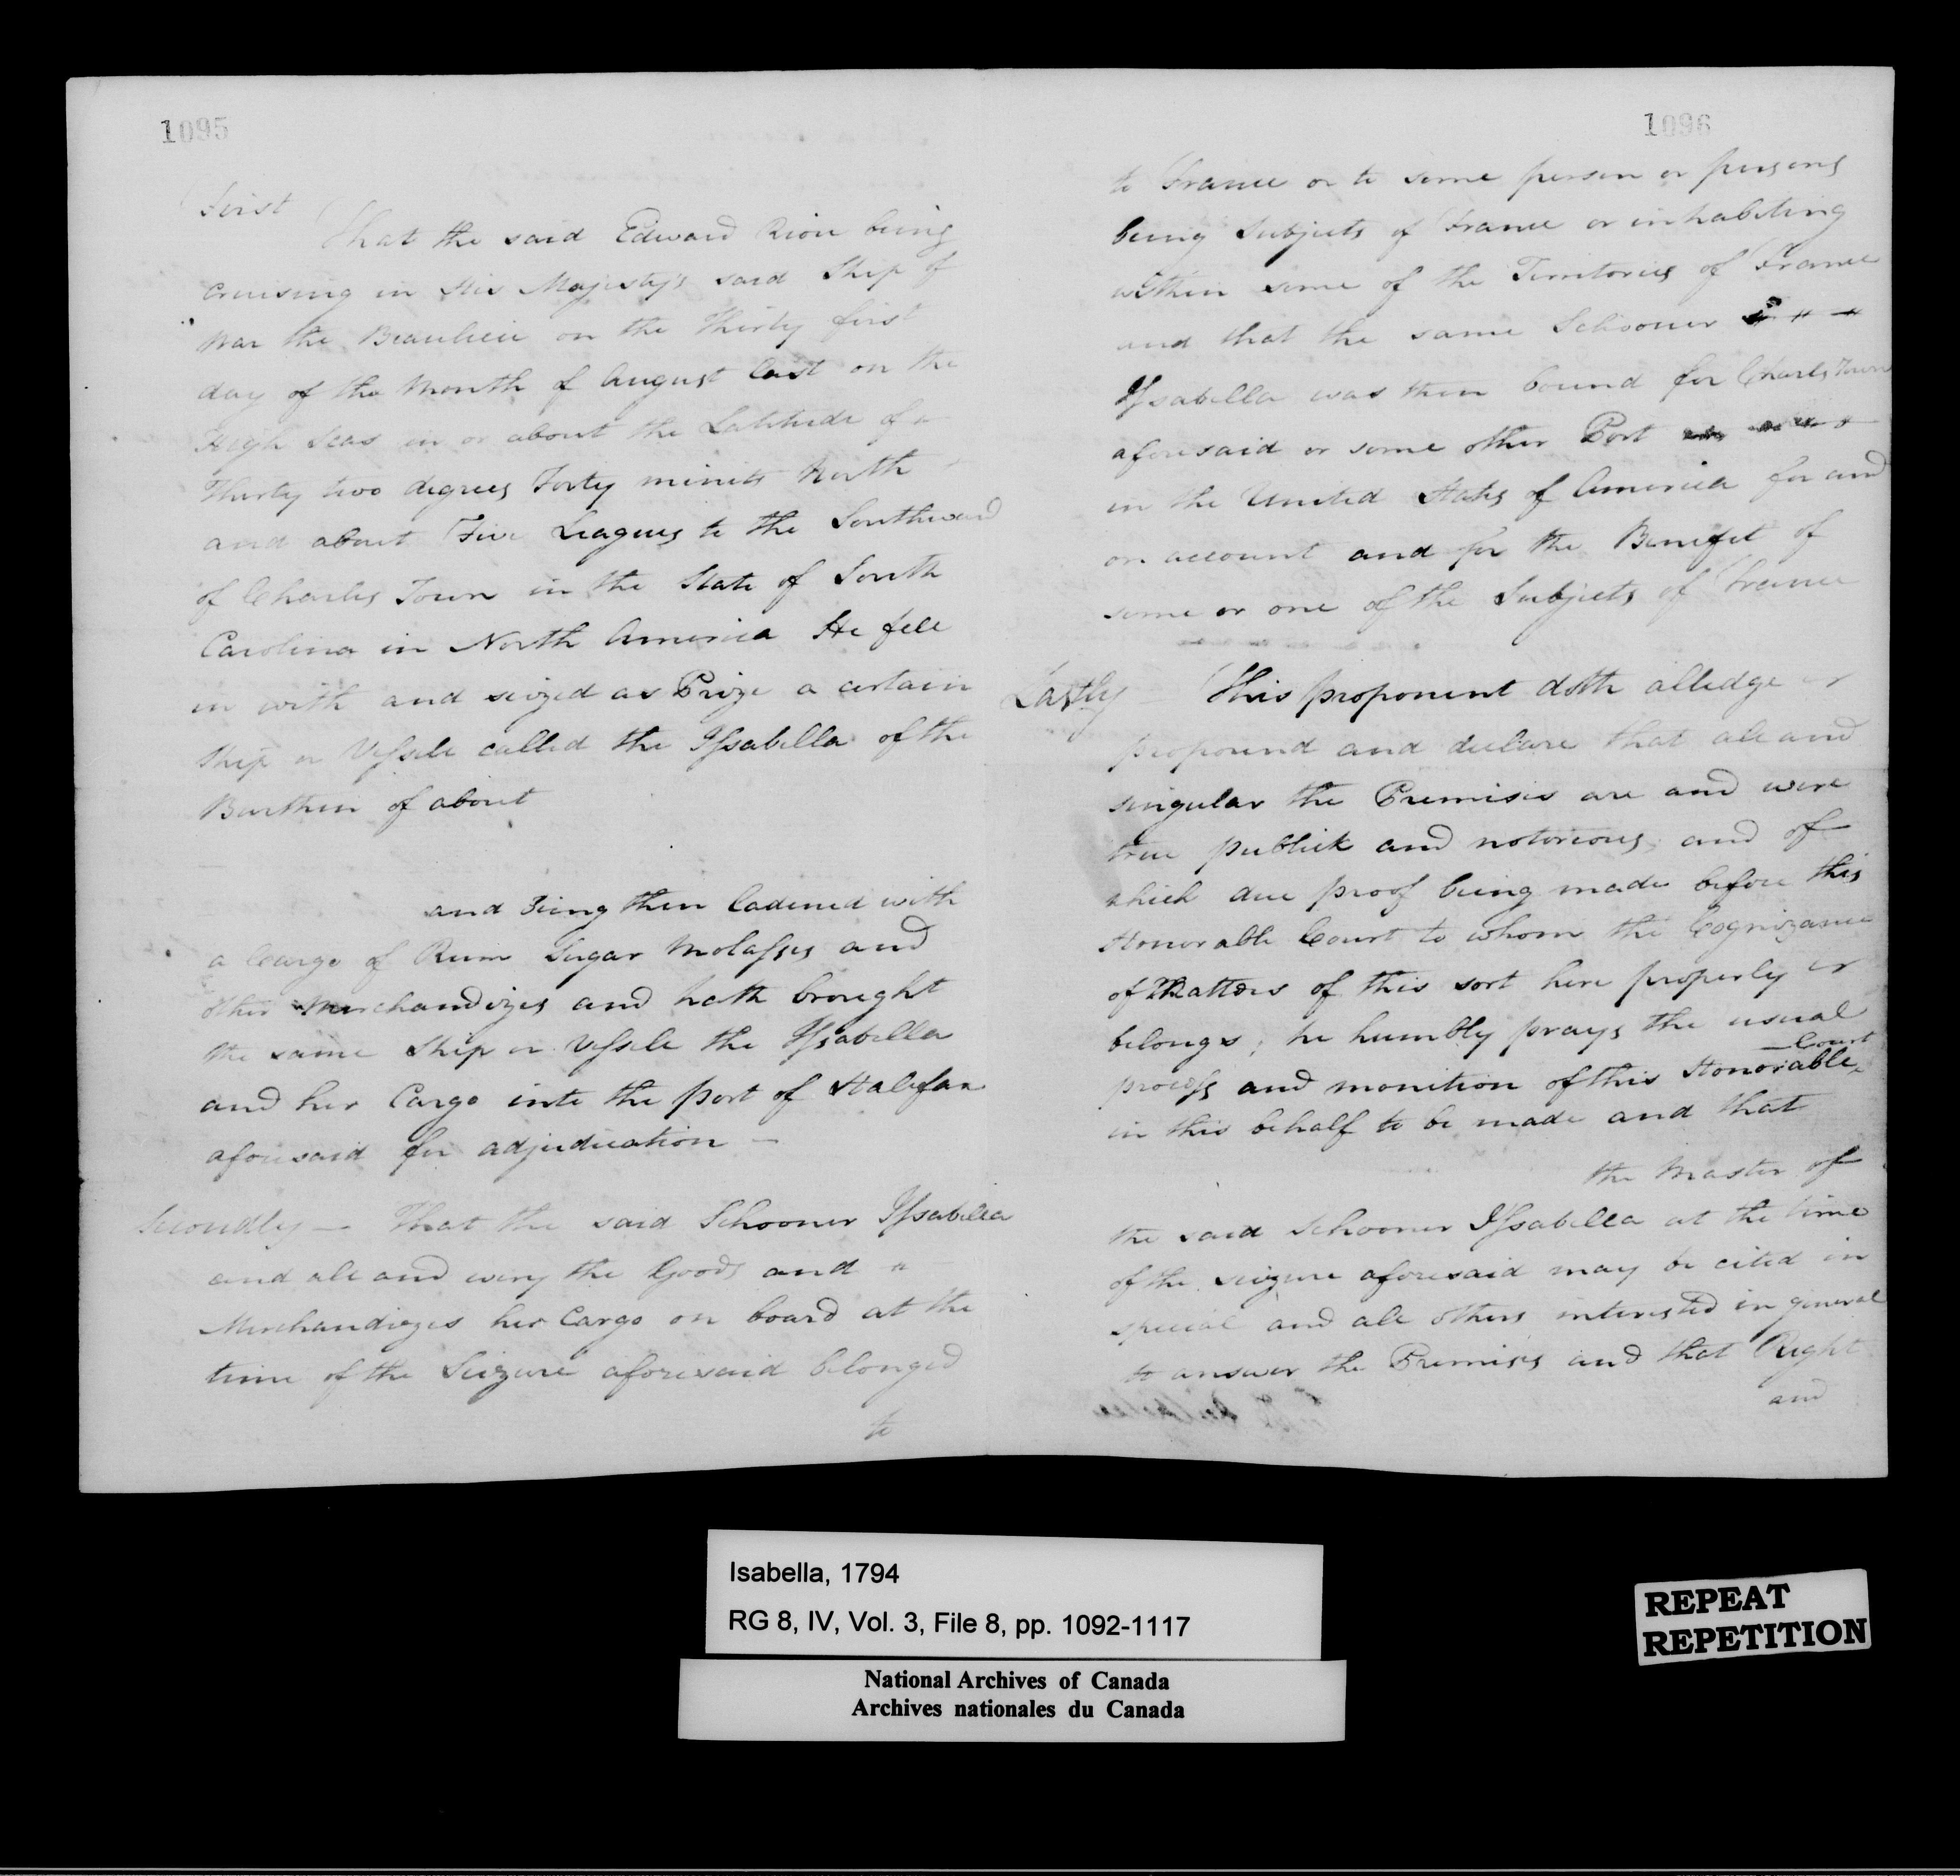 1095
First
That the said Edward Riou being
cruising in His Majesty's said Ship of
War the Beaulieu on the Thirty first
day of the Month of August last on the
High Seas in or about the Latitude of
Thirty two degrees Forty minits North
and about Five Leagues to the Southward
of Charles Town in the State of South
Carolina in North America He fell
in with and seized as Prize a certain
Ship or Vessele called the Issabella of the
Burthen of about
and Being then ladened with
a Cargo of Rum Sugar Molasses and
other Merchandizes and hath brought
the same Ship or Vessele the Issabella
and her Cargo into the port of Halifax
aforesaid for adjudication —
Secondly — That the said Schooner Issabella
and all and every the Goods and
Merchandizes her Cargo on board at the
time of the Seizure aforesaid belonged
to
1096
to France or to some person or persons
being Subjects of France or inhabiting
within some of the Territories of France
and that the same Schooner
Issabella was then bound for Charles Town
aforesaid or some other Port
in the United States of America for and
on account and for the Benefit of
some or one of the Subjects of France
Lastly — This proponent doth alledge
propound and declare that all and
singular the Premises are and were
true publick and notorious, and of
which due proof being made before this
Honorable Court to whom the Cognizance
of Matters of this sort here properly
belongs, he humbly prays the usual
process and monition of this Honorable Court
in this behalf to be made and that
the Master of
the said Schooner Issabella at the time
of the seizure aforesaid may be cited in
special and all others interested in general
to answer the Premises and that Right
and
Isabella, 1794
RG 8, IV, Vol. 3, File 8, pp. 1092-1117
National Archives of Canada
Archives nationales du Canada
REPEAT
REPETITION